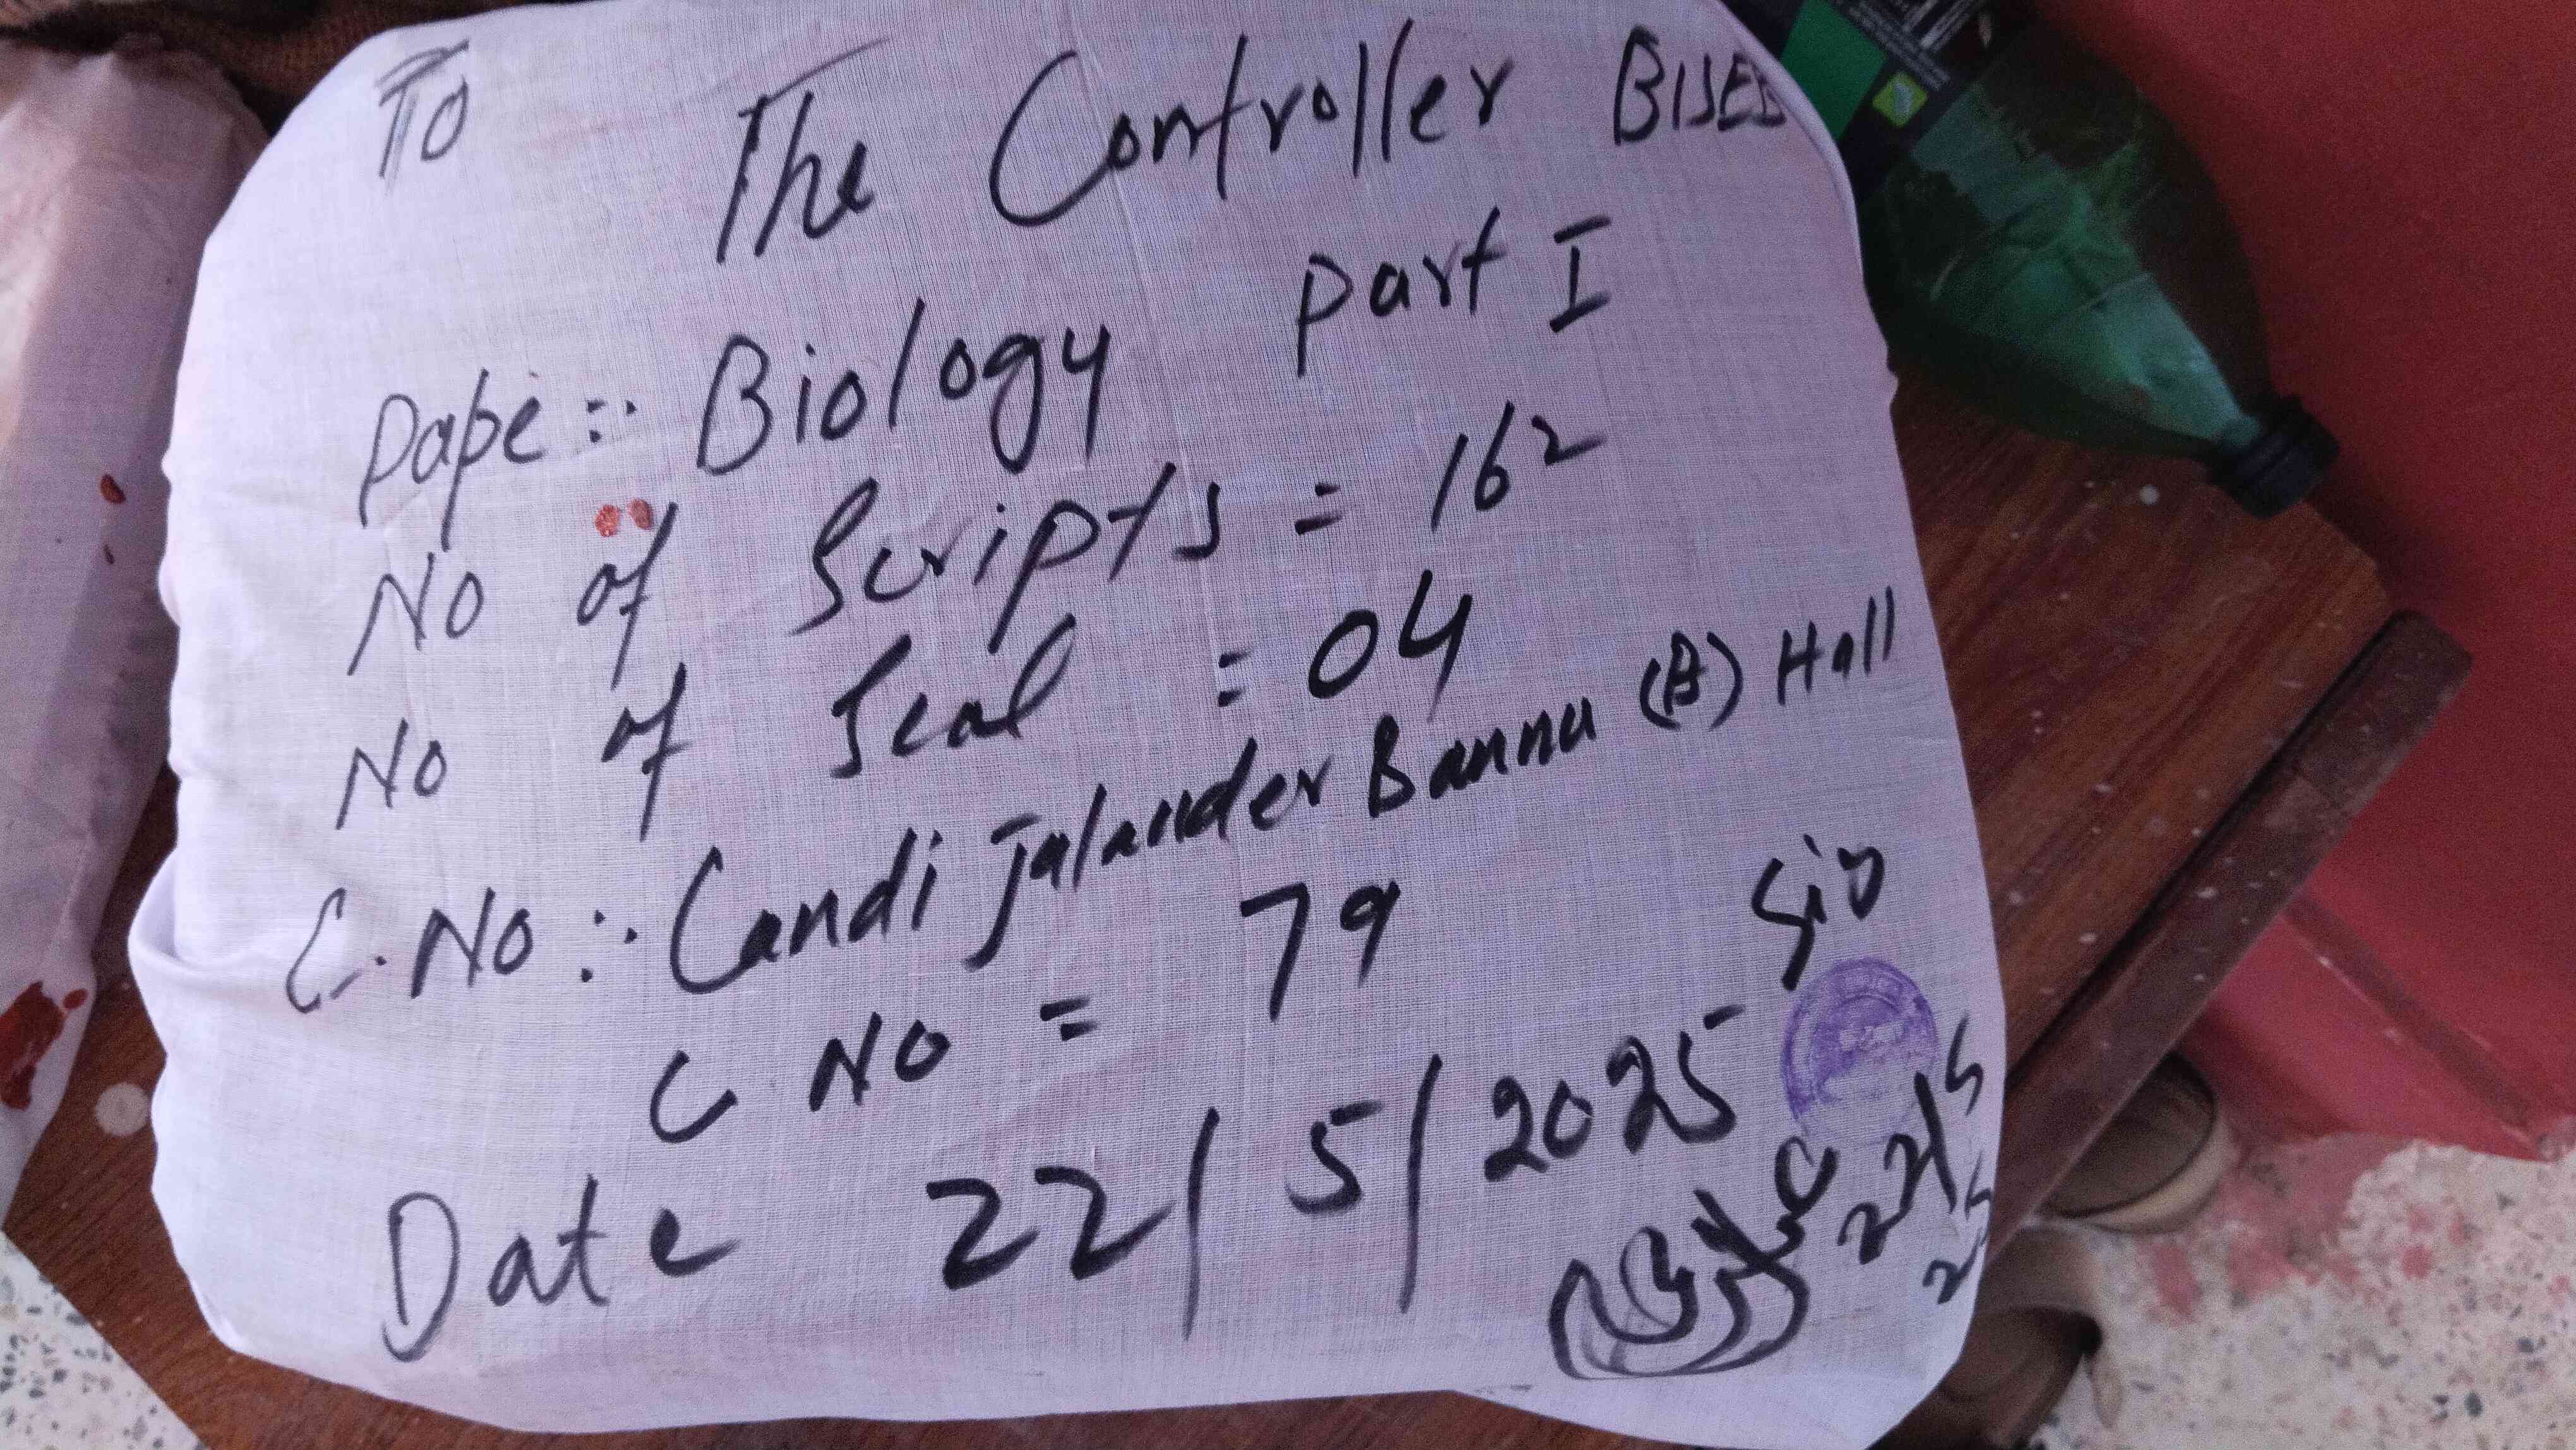 To
The Controller BISEB
Pape :- Biology Part I
No of Scripts = 162
No of Seal = 04
C. No :- Candi Jalander Bannu (A) Hall
C No = 79
Date 22/5/2025